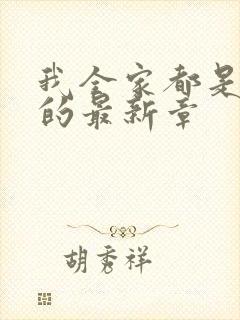 我全家都是
的最新章
胡秀祥